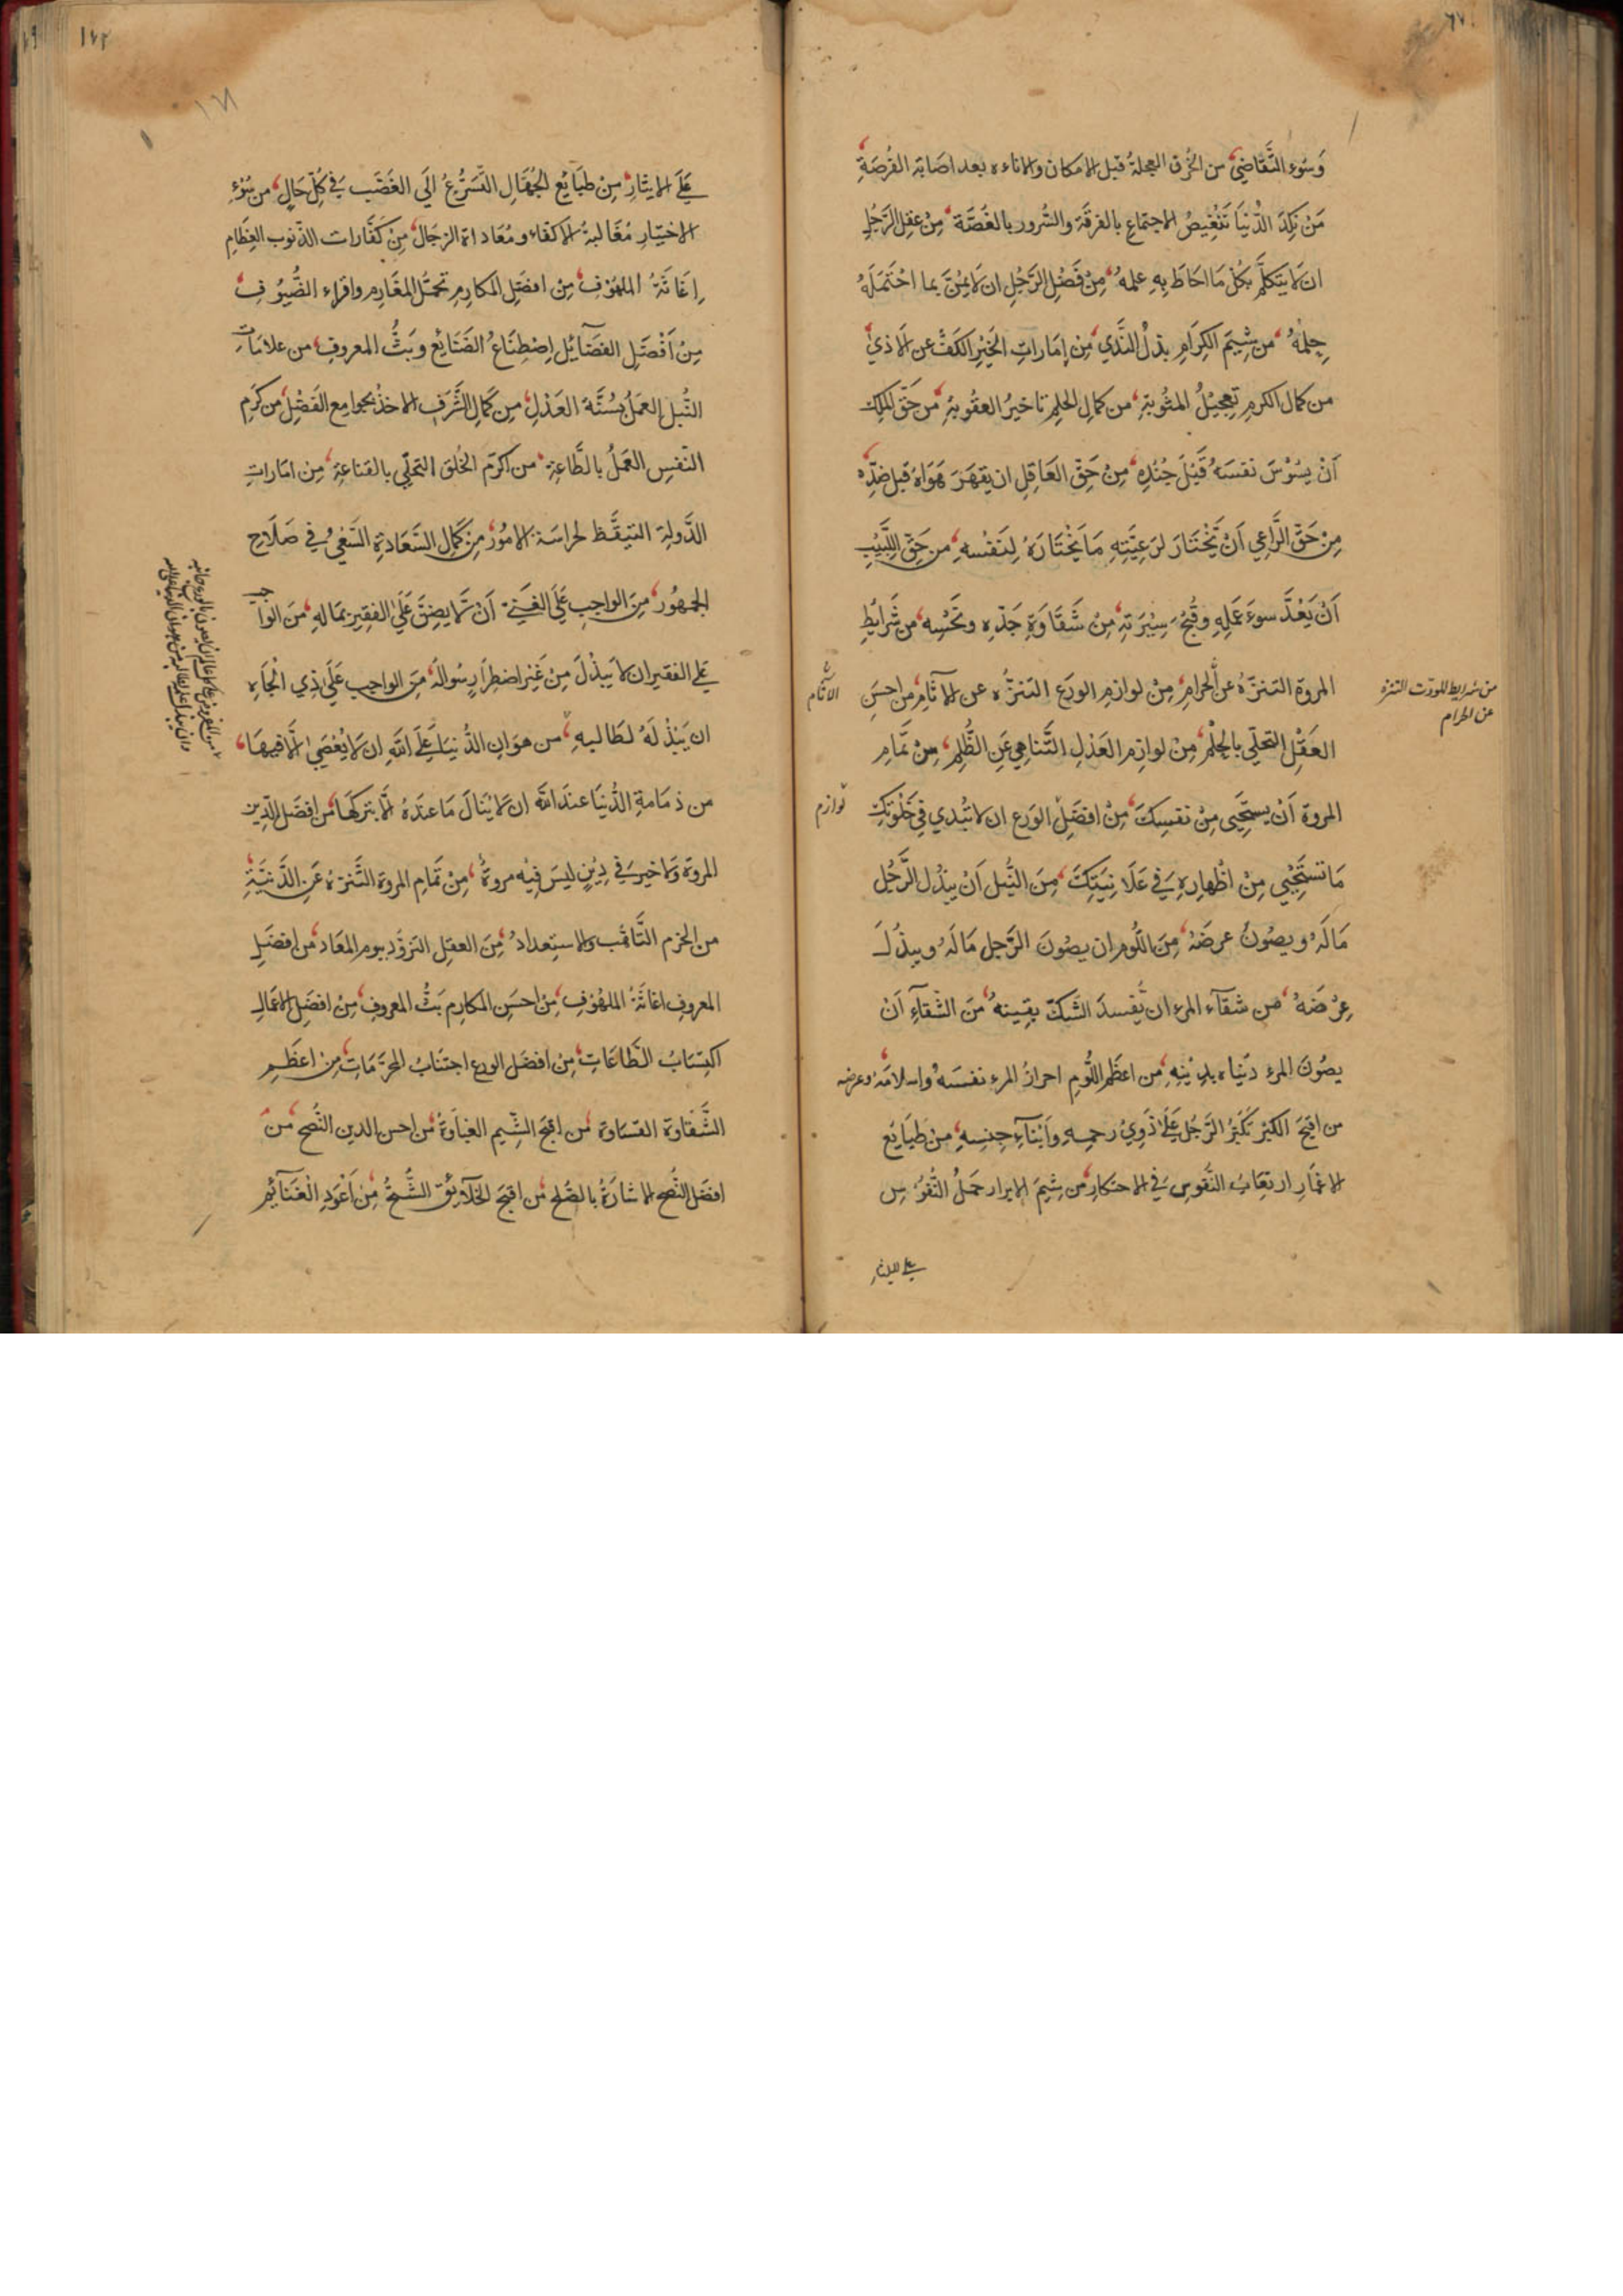 وَسُوء التَّقَاضِيْ من الخُرق العجلةُ قبل الامكان والاناءه بعد اصَابة الفُرصَةِ
مَنْ نكِدَ الدّنيَا تَنْغِيصُ الاجتماعِ بالفرقَة والسُّرور بالغَصَّة مِنْ عقل الرَّجُلِ
ان لَا يتكلّم بكُلّ مَا احَاطَ بِهِ علمهُ مِنْ فَضْل الرَّجُلِ ان لَا يمُنّ بما احْتَمَلَهُ
حِلمُهُ من شِيَم الكِرَامِ بذلُ النَّدي مِن اِمَاراتِ الخَيْرِ الكَفُّ عن الاَذيٰ
من كمال الكرمِ تعجيْلُ المثُوبَةِ من كمال الحلم تاخيرُ العقُوبةِ من حَقّ الملِك
اَنْ يسُوْسَ نفسَهُ قَبْلَ جُنْدِه مِنْ حَقّ العَاقِلِ ان يقهَرَ هَوَاهُ قبل ضدِّه
مِنْ حَقّ الرَّاعِي اَنْ يَّخْتَارَ لرَعيَّتِهِ مَا يَخْتَارَهُ لِنَفْسهِ من حَقّ اللّبَيْبِ
اَنْ يَعُدَّ سوءَ عَمَلِهِ وقُبْحَ سِيْرَتهِ مِنْ شَقَاوَةِ جَدّهِ ونَحْسِه من شَرَايطِ
المروة التنزّهُ عن الحَرامِ مِنْ لوازمِ الورَعِ التنزّهُ عن الآثامِ من احسَنِ
العَقْلِ التحلّي بالحِلْمِ مِنْ لوازِم العَدْلِ التَّناهِي عَنِ الظُّلِم مِنْ تَمَامِ
المروة اَنْ يستَحْيي مِنْ نفسِكَ مِنْ افضَلِ الوَرَع ان لا تُبْدي فِي خَلْوَتِكَ
مَا تستَحْيِي مِنْ اظْهارِهِ فِي عَلَانِيَتِكَ مِنَ النُّبل اَنْ يبذُل الرَّجُلُ
مَالَهُ ويصُونُ عرضَهُ مِنَ اللّوم ان يصُونَ الرّجل مَالَهُ ويبذُلَ
عِرْضَهُ من شقآء المرءِ ان يُّفسدَ الشّكّ يقينهُ مِنَ الشّقآءِ اَنْ
يصُونَ المرءُ دنيَاه بدِيْنِهِ من اعظَم اللُّومِ احرازُ المرءِ نفسَهُ واسلامهُ عرضه
من اقبَحِ الكبْرِ تَكَبّرُ الرَّجُلِ عَلَى ذَوِيْ رحمِهِ واَبْنَآءِ جنسِهِ من طبَايع
الاغمَارِ اتعَابُ النّفوسِ فِي الاحتكارِ من شِيَم الابرار حَملُ النّفُوْسِ
علي الايثار
من شرايط المروّت التنزه
عن الحرام
الاثام
لوازم
١٧٢
١٧١
عَلَى الايثارِ مِنْ طبَايع الجُهّالِ التّسَرُّعُ الَي الغَضَب فِي كُلّ حَالٍ من سُوْءِ
الاختيَارِ مُغَالبةُ الاكفَاء ومُعَاداة الرّجَال مِنْ كَفّارات الذّنوب العِظَامِ
اِغَاثَةُ الملهُوْفِ مِنْ افضَلِ المكارِمِ تحمّلُ المغَارِم واقراء الضُّيُوْفِ
مِنْ اَفْضَلِ الفضَآيل اِصْطِنَاعُ الصَّنَايع وبَثُّ المعروفِ من علامَاتِ
النُّبل العمَلُ بسُنّةِ العَدْلِ مِن كَمَالِ الشَّرَفِ الاخذُ بجوامِع الفَضْلِ من كَرَمِ
النّفسِ العمَلُ بالطَّاعةِ من اكرَمِ الخُلقِ التحلّي بالقناعةِ مِن امَاراتِ
الدَّولةِ التيقّظ لحراسَة الامُوْر مِنْ كَمَالِ السَّعَادَةِ السَّعْيُ في صَلَاحِ
الجمهُور مِنَ الواجبِ عَلَى الغَنيِّ اَنْ لَّا يضِنَّ عَلَي الفقِيرِ بمَالهِ مِنَ الواجبِ
عَلي الفقير ان لا يَبذُلَ مِنْ غَيْر اضطِرَارٍ سُوالَهُ مِن الواجبِ عَلَي ذِي الْجَاهِ
ان يَبْذُلَهُ لطَالبهِ من هوَانِ الدُّنيَا عَلَى اللّهِ ان لَا يُعْصَيٰ اِلَّا فيهَا
من ذمَامةِ الدُّنيَا عندَ اللّه ان لَا يُنالَ مَا عندَهُ الّا بتركهَا من افضَل الدِّينِ
المروة وَلا خير فِي دِيْنٍ ليسَ فيْه مروةٌ مِنْ تَمَام المروة التَّنزّهُ عَنِ الدَّنيَّةِ
من الحزم التَّاهّب والاستعدادُ مِنَ العقلِ التزوّد ليوم المعَاد من افضَلِ
المعروفِ اغاثَةُ الملهُوْفِ مِنْ احسَنِ المكارِم بَثُّ المعروفِ مِنْ افضَلِ الاعمَالِ
اكتِسَابُ الطّاعَاتِ مِنْ افضَلِ الورع اجتنَابُ المحرّمَاتِ مِن اعظَمِ
الشَّقاوة القسَاوة من اقبَحِ الشِّيمِ الغبَاوةُ من احسن الدين النُّصح مِنْ
افضَل النُّصح الاشارَةُ بالصّلحِ من اقبَحِ الخَلآئقِ الشُّحُّ مِنْ اَعْوَدِ الْغنَآئم